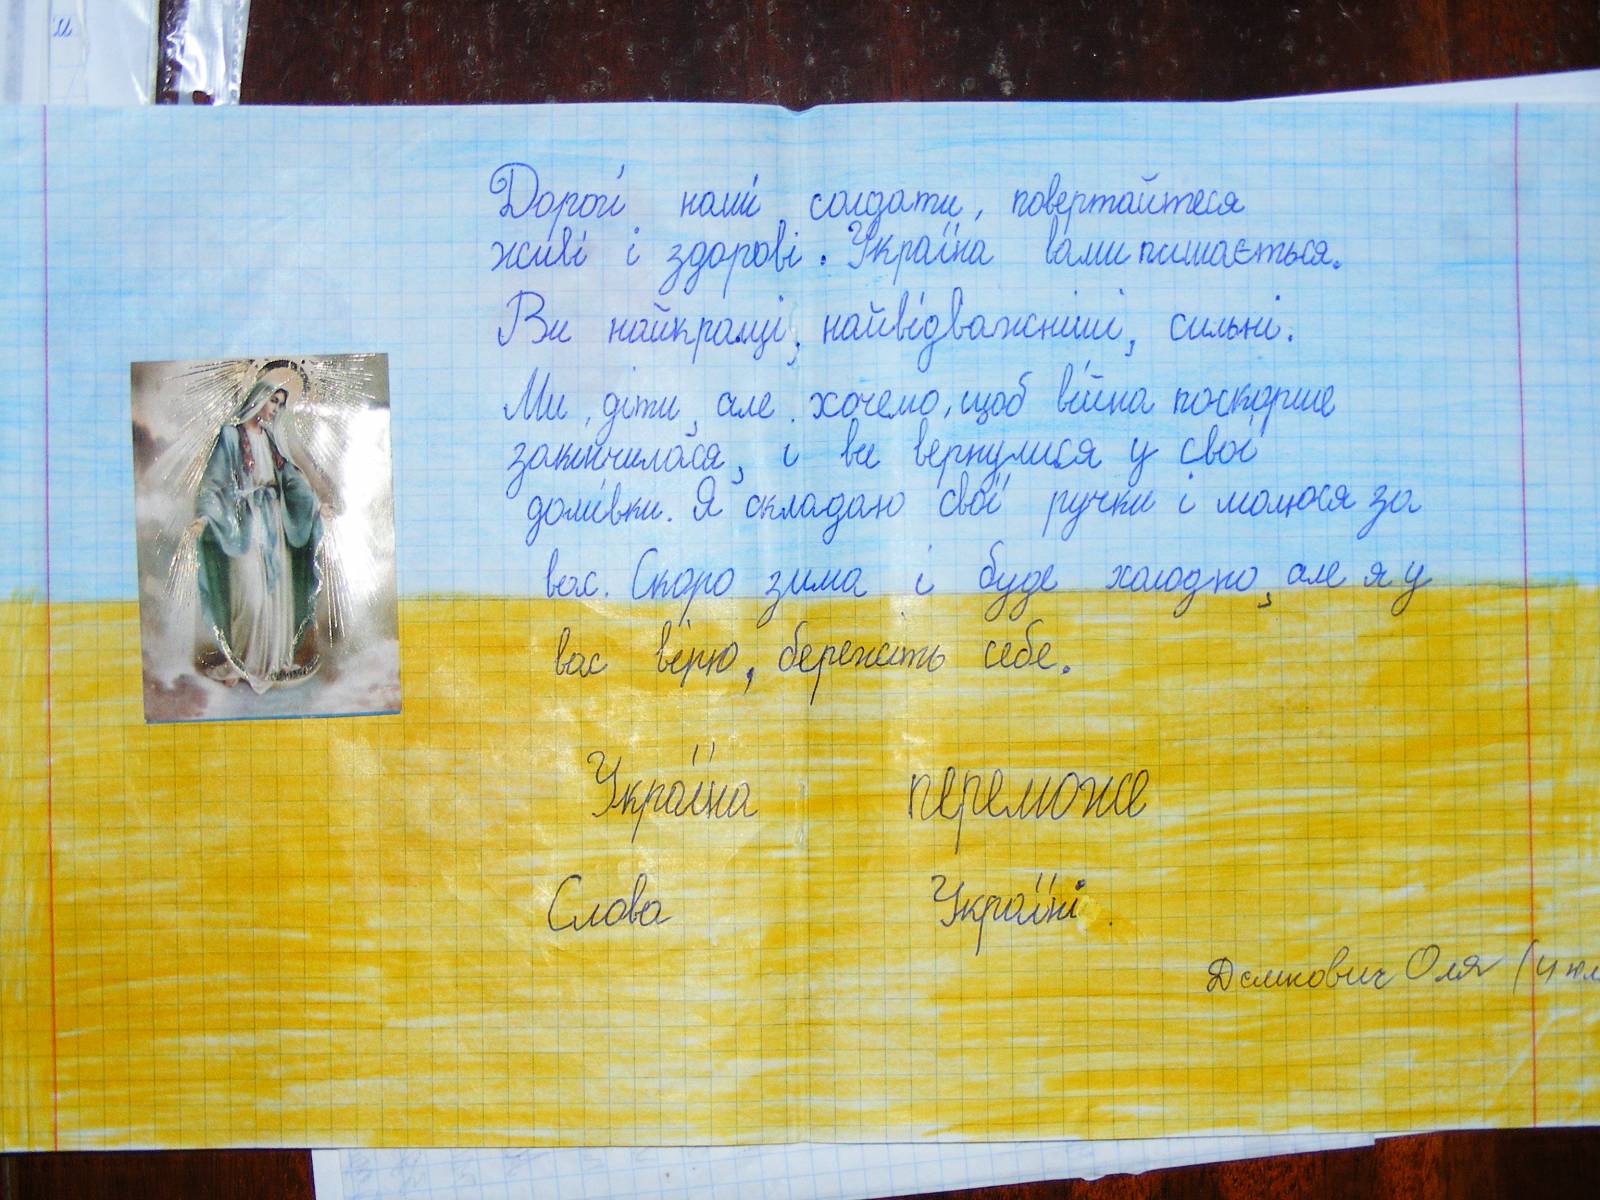 Дорогі наші солдати, повертайтеся
живі і здорові. Україна вами пишається.
Ви найкращі, найвідважніші, сильні.
Ми, діти, але хочемо, щоб війна поскорше
закінчилася, і ви вернулися у свої
домівки. Я складаю свої ручки і молюся за
вас. Скоро зима і буде холодно, але я у
вас вірю, бережіть себе.
Україна переможе
Слава Україні.
Демкович Оля (4 кл